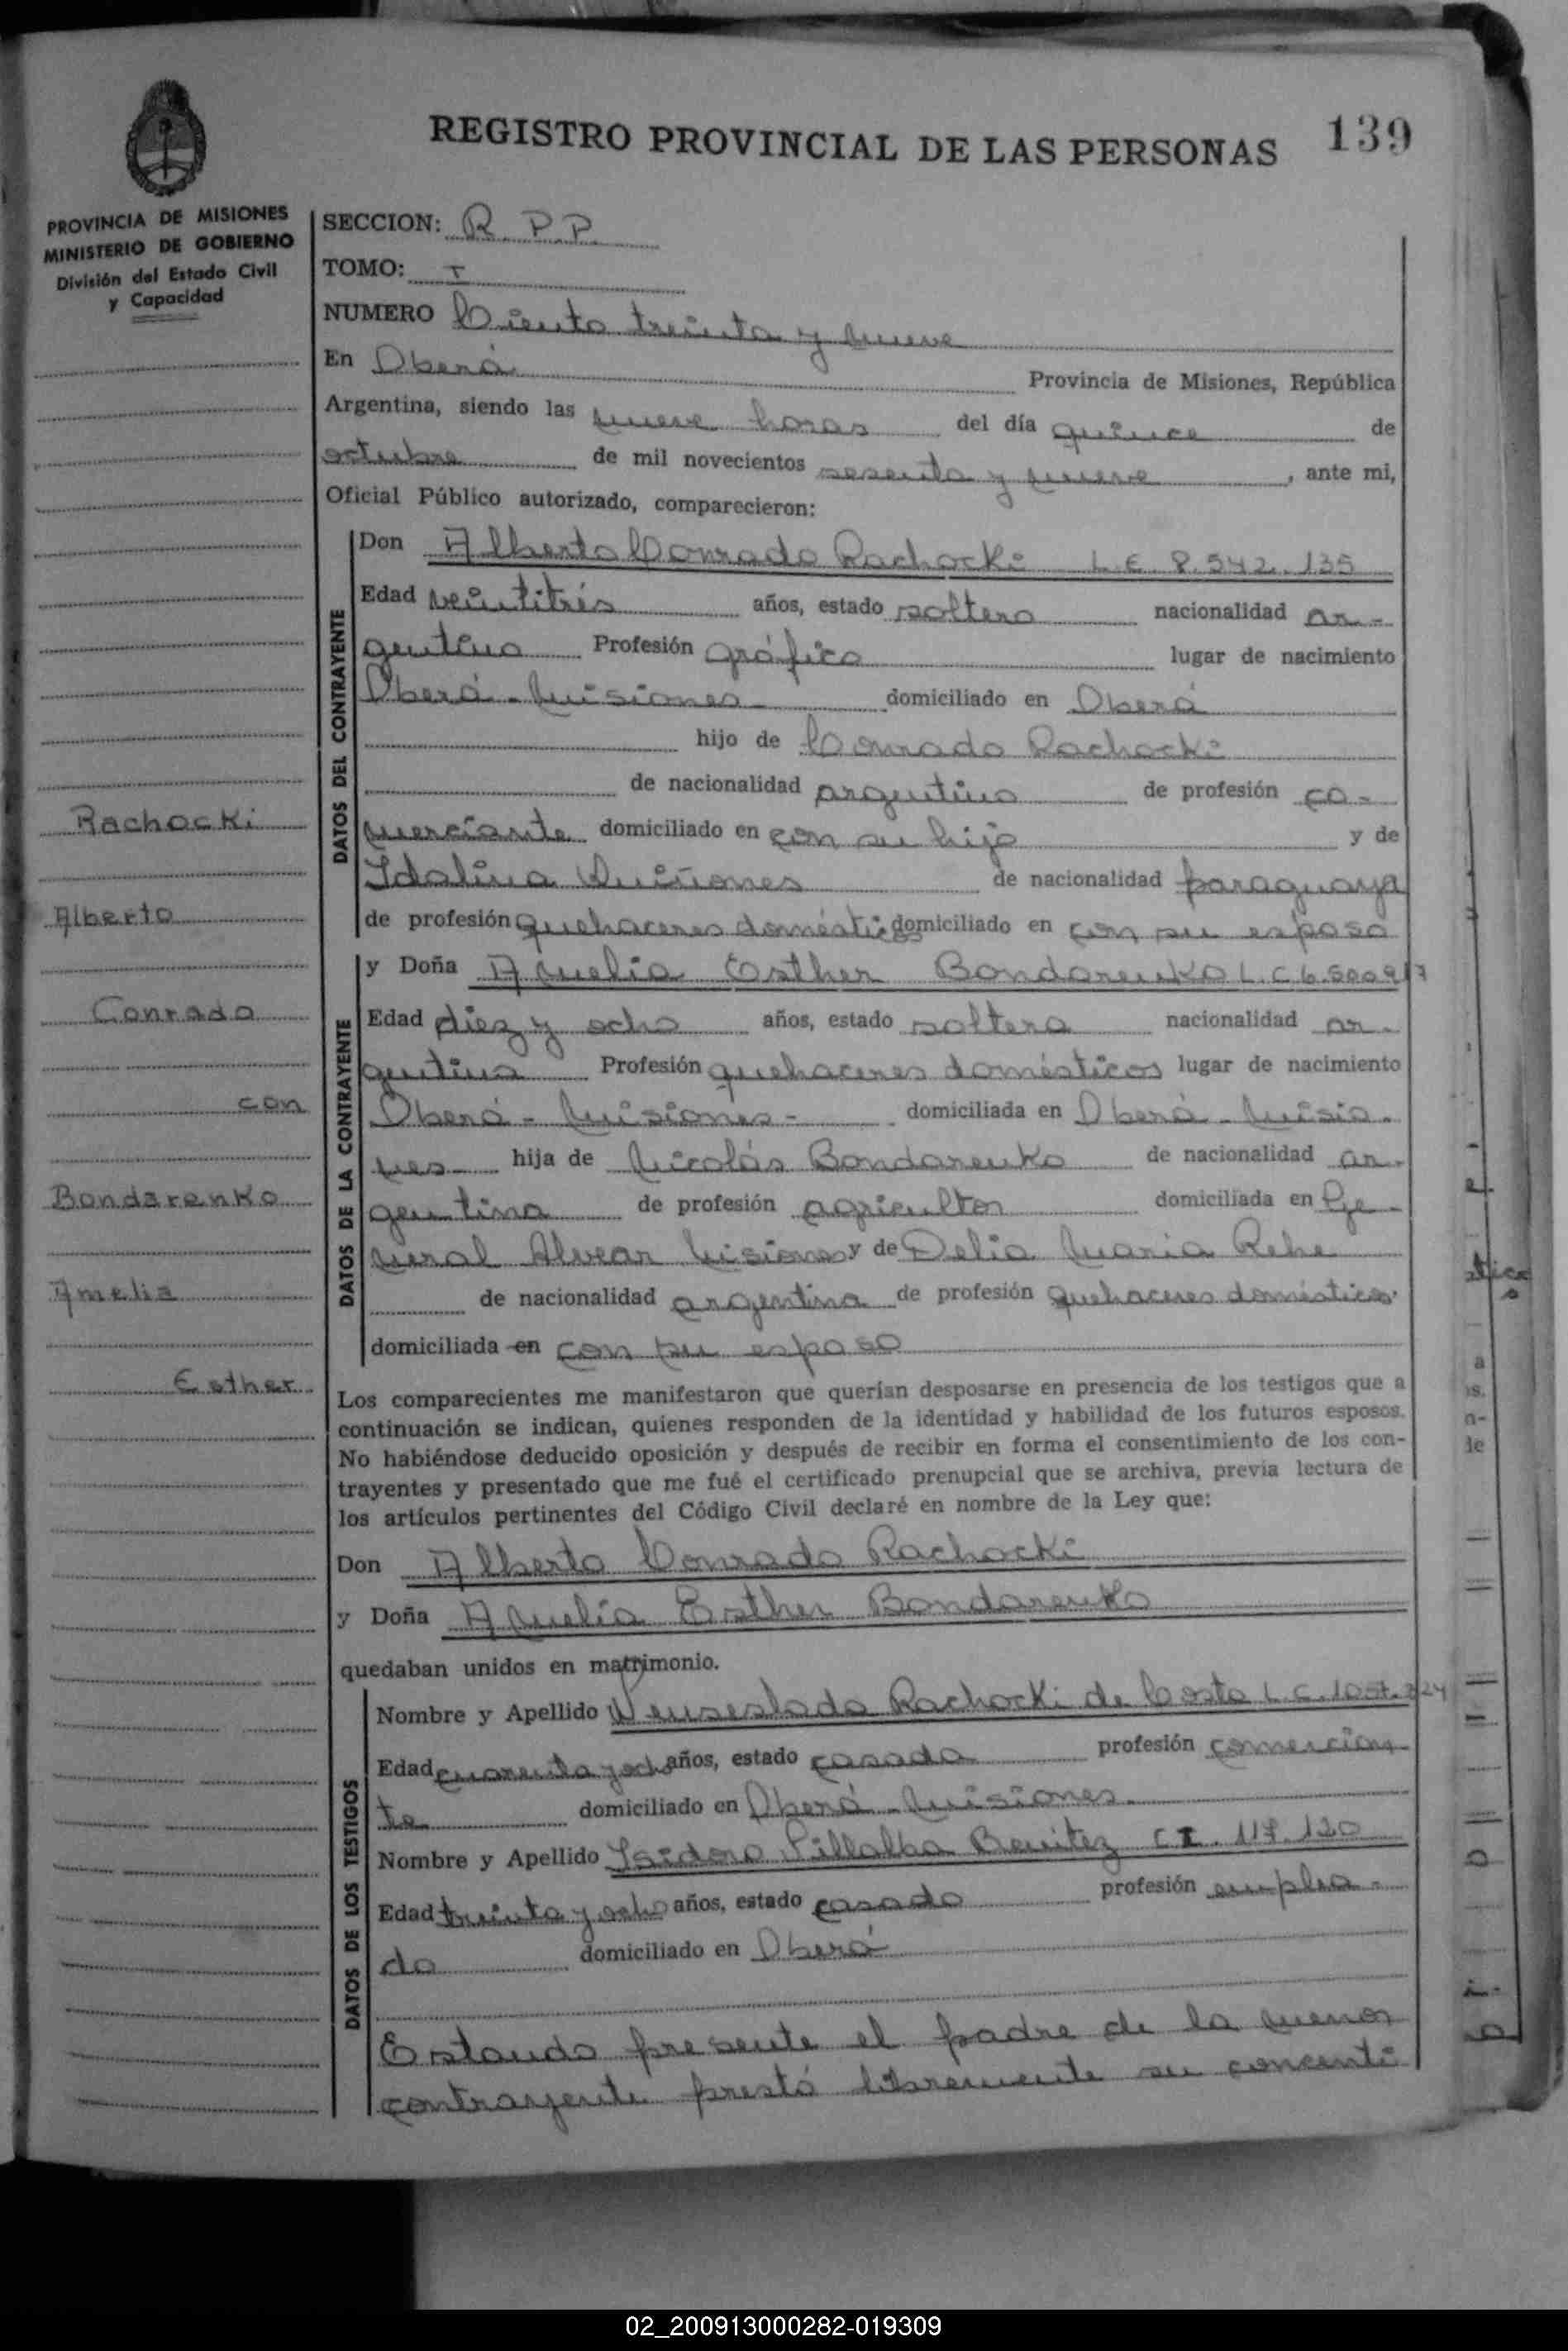 REGISTRO PROVINCIAL DE LAS PERSONAS 139
PROVINCIA DE MISIONES
MINISTERIO DE GOBIERNO
División del Estado Civil
y Capacidad
SECCION: R. P. P.
TOMO: I
NUMERO Ciento treinta y nueve
En Oberá Provincia de Misiones, República
Argentina, siendo las nueve horas del día quince de
octubre de mil novecientos sesenta y nueve, ante mi,
Oficial Público autorizado, comparecieron:
DATOS DEL CONTRAYENTE
Don Alberto Conrado Rachocki L.E. 8.542.135
Edad veintitrés años, estado soltero nacionalidad ar-
gentino Profesión gráfico lugar de nacimiento
Oberá - Misiones - domiciliado en Oberá
hijo de Conrado Rachocki
de nacionalidad argentino de profesión co-
merciante domiciliado en con su hijo y de
Idalina Quiñones de nacionalidad paraguaya
de profesión quehaceres domésticos domiciliado en con su esposo
DATOS DE LA CONTRAYENTE
y Doña Amelia Esther Bondarenko L.C. 6.500.917
Edad diez y ocho años, estado soltera nacionalidad ar-
gentina Profesión quehaceres domésticos lugar de nacimiento
Oberá - Misiones - domiciliada en Oberá - Misio-
nes hija de Nicolás Bondarenko de nacionalidad ar-
gentina de profesión agricultor domiciliada en Ge-
neral Alvear Misiones y de Delia Maria Rehe
de nacionalidad argentina de profesión quehaceres domésticos
domiciliada en con su esposo
Los comparecientes me manifestaron que querían desposarse en presencia de los testigos que a
continuación se indican, quienes responden de la identidad y habilidad de los futuros esposos.
No habiéndose deducido oposición y después de recibir en forma el consentimiento de los con-
trayentes y presentado que me fué el certificado prenupcial que se archiva, previa lectura de
los artículos pertinentes del Código Civil declaré en nombre de la Ley que:
Don Alberto Conrado Rachocki
y Doña Amelia Esther Bondarenko
quedaban unidos en matrimonio.
DATOS DE LOS TESTIGOS
Nombre y Apellido Wenseslada Rachocki de Costa L.C. 1.057.324
Edad cuarenta y ocho años, estado casada profesión comercian
te domiciliado en Oberá - Misiones.
Nombre y Apellido Isidoro Villalba Benitez C.I. 117.120
Edad treinta y ocho años, estado casado profesión emplea-
do domiciliado en Oberá
Estando presente el padre de la menor
contrayente prestó libremente su concenti
Rachocki
Alberto
Conrado
con
Bondarenko
Amelia
Esther
02_200913000282-019309